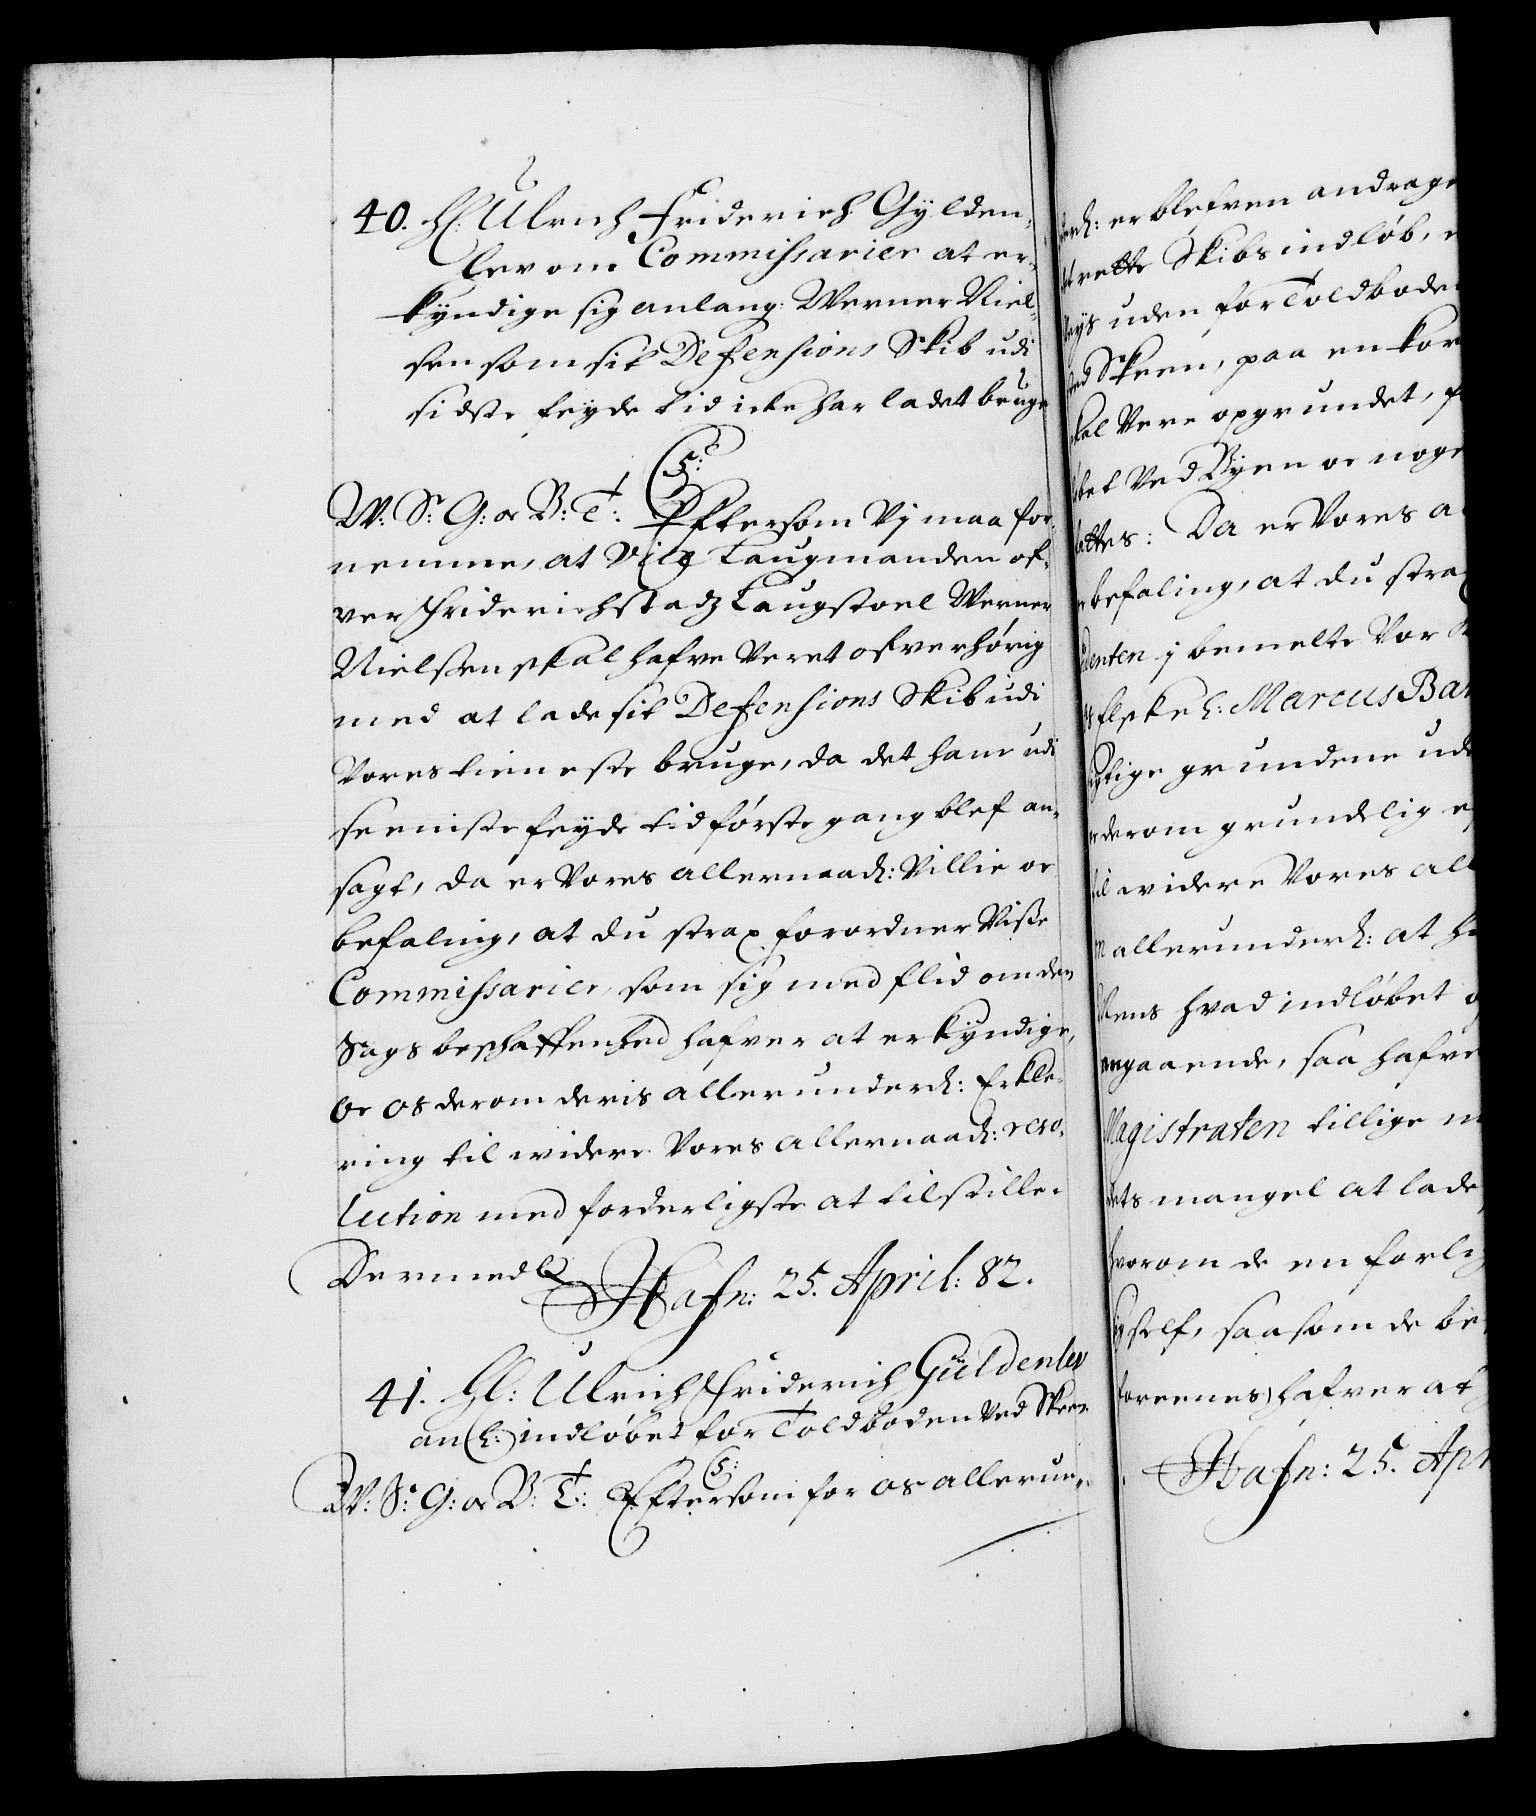 40. H: Ulrich Friderich Gylden-
lev om Commissarier at er-
kyndige sig anlang: Werner Niel-
sen som sit Defensions Skib udi
sidste feyde tid icke har ladet bruge
C5:
W: S: G: oc B: T: Eftersom Vj maa for-
nemme, at Laugmanden of-
ver Friderichstadz Laugstoel Werner
Nielsen skal hafve Veret ofverhørig
med at lade sit Defensions Skib udi
Vores tieneste bruge, da det ham udi
seeniste feyde tid første gang blef an-
sagt, da er Vores allernaad: Villie oc
befaling, at du strax forordner Visse
Commissarier, som sig med flid om den
Sags beschaffenhed hafver at erkyndige,
oc os derom deris allerunderd: Erkle-
ring til widere Vores allernaad: reso-
lution med forderligste at tilstille.
Dermed Hafn: 25. April: 82.
41. Hl: Ulrich Friderich Güldenlev
an(l:) indløbet for Toldboden Ved Skeen
C5:
W: S: G: oc B: T: Eftersom for os allerun-
derd: er blefven andrage
rette Skibs indløb,
uden for Toldboden
Ved Skeen, paa en kor
skal Vere opgrundet,
løbet Ved Byen oc noge
Da er Vores a
befaling, at du stra
denten j bemelte Vor
Marcus Bar
grundene ud
derom grundelig
til widere Vores all
allerunderd: at h
hvad indløbet
angaaende, saa hafve
Magistraten tillige m
mangel at lade
hvorom de en forlig
self, saasom de be
foreenes) hafver at
Hafn: 25. Apr